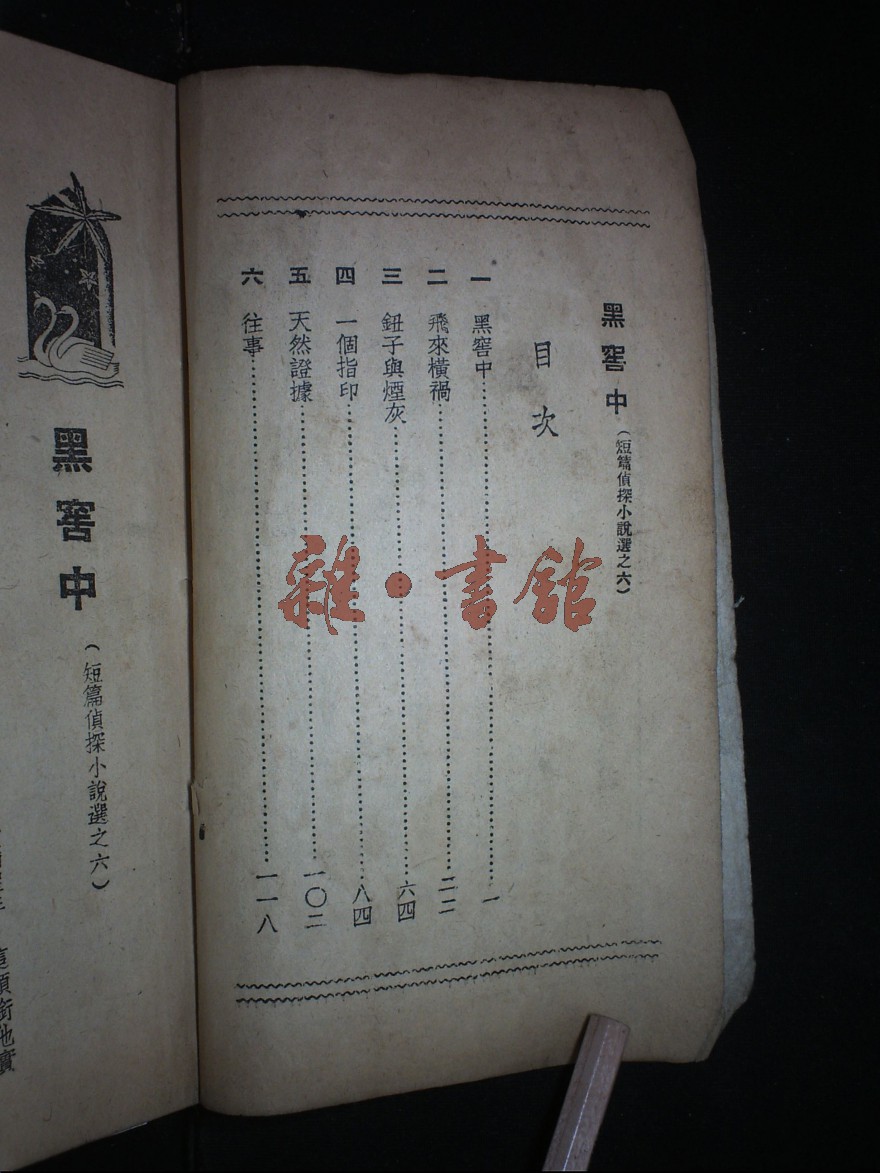 黑窖中（短篇偵探小說選之六）
目次
一 黑窖中……一
二 飛來橫禍……二二
三 鈕子與煙灰……六四
四 一個指印……八四
五 天然證據……一〇二
六 往事……一一八
黑窖中
（短篇偵探小說選之六）
雜·書館